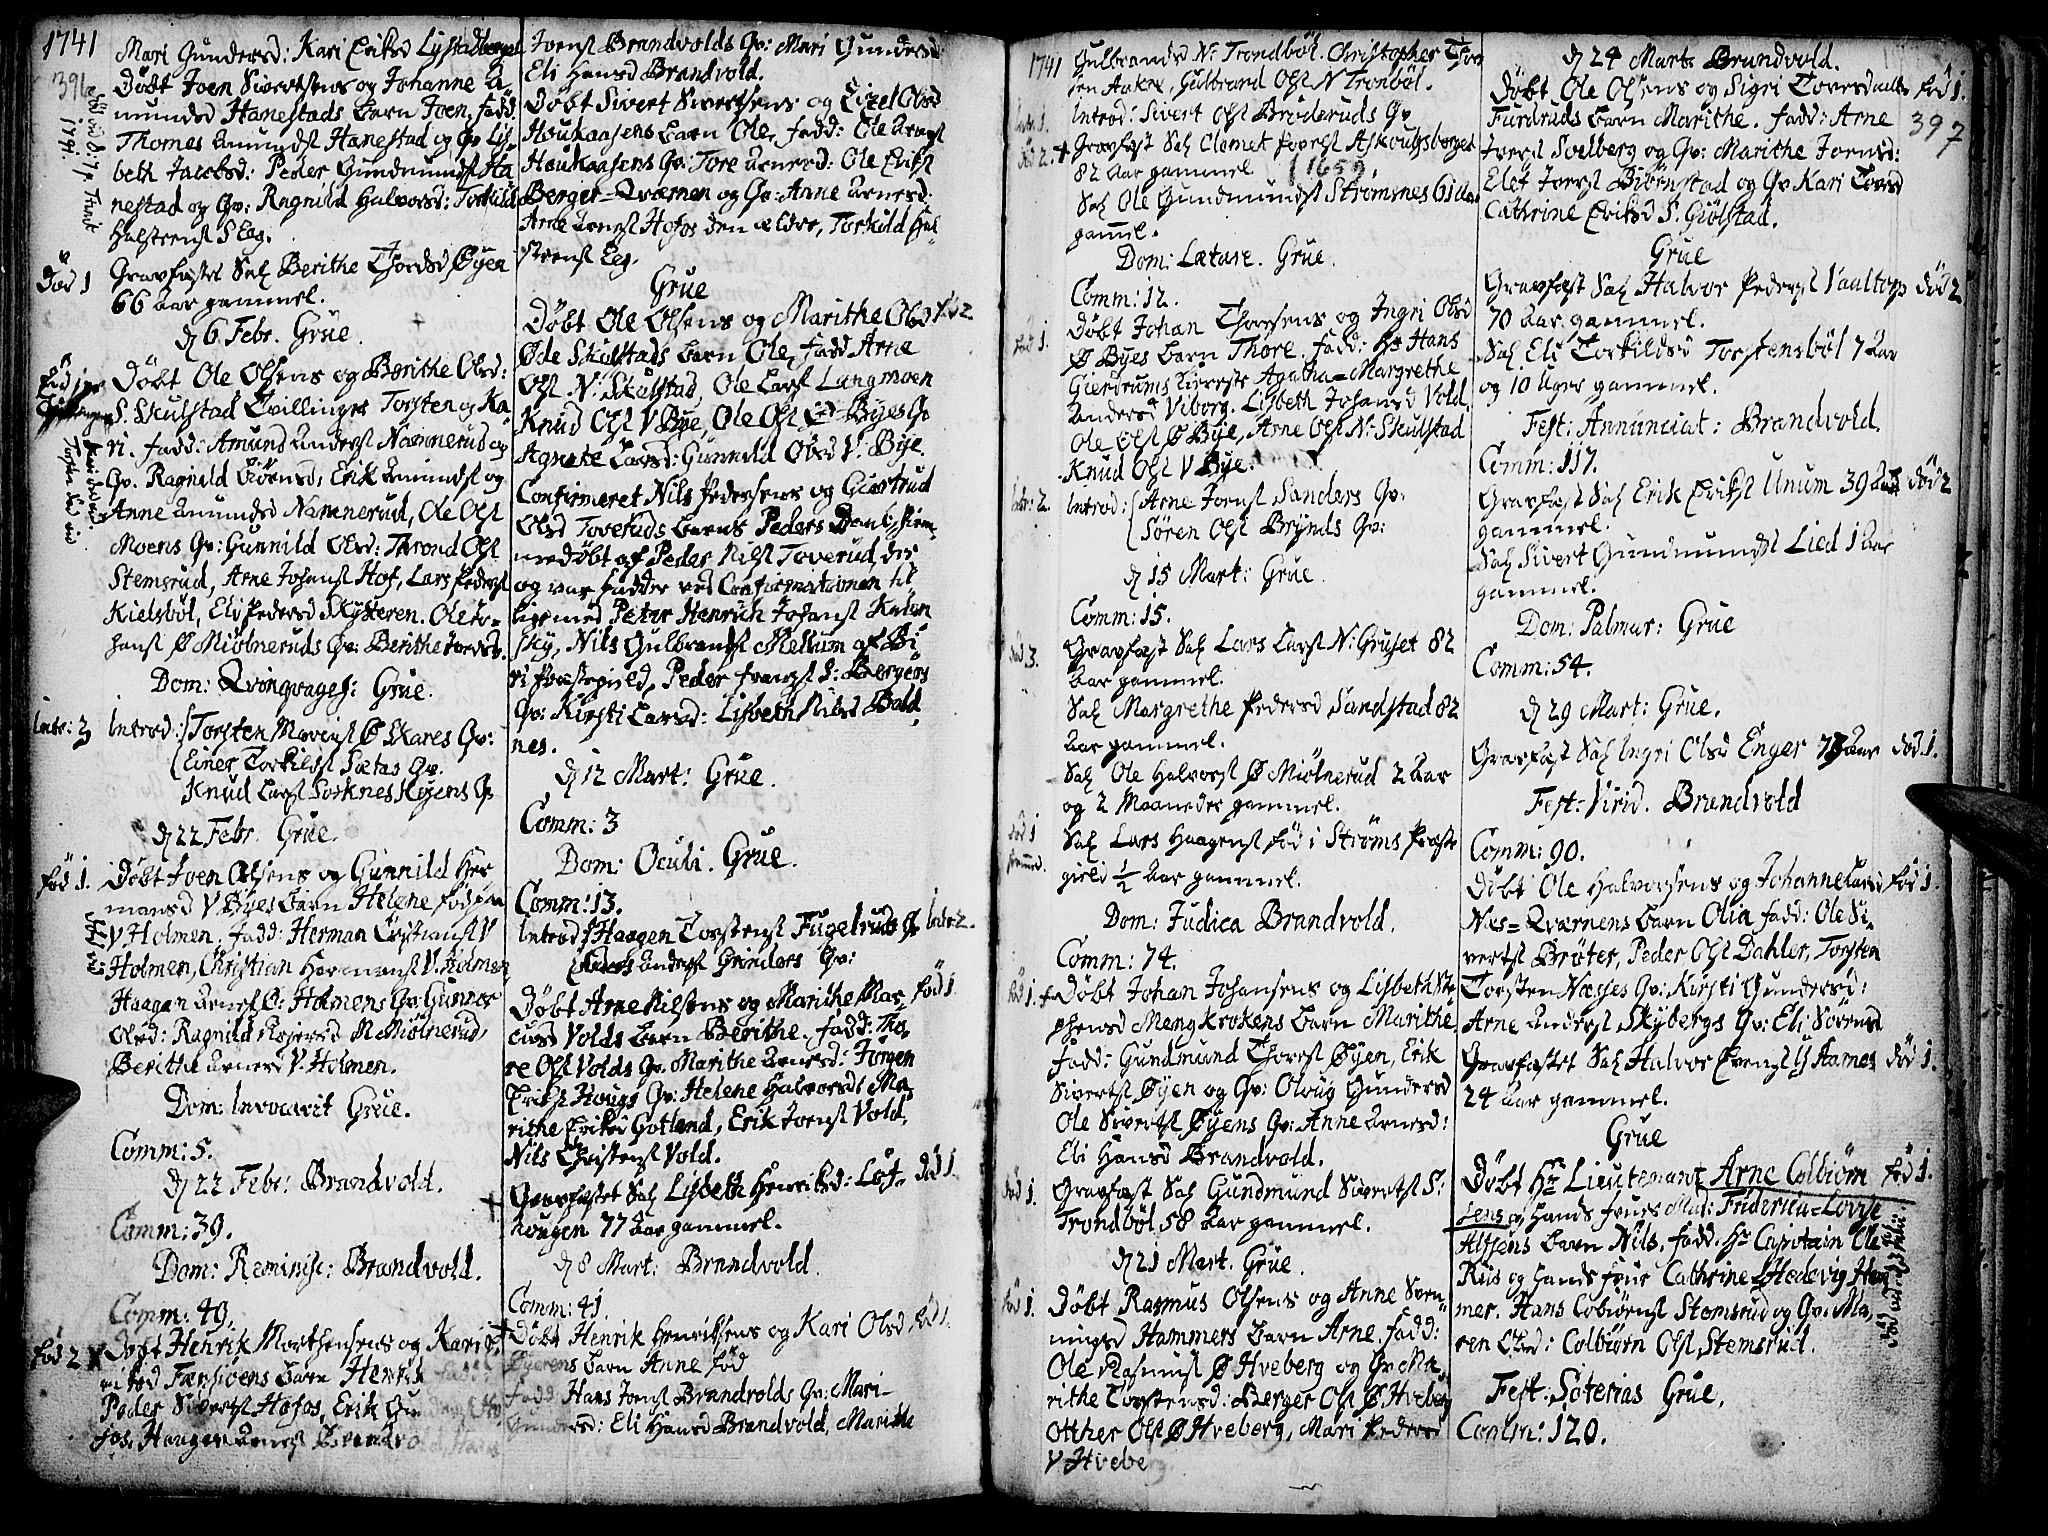 1741
396
Mari Gundersd: Kari Eriksd Lystadberget
Döbt Joen Sivertsens og Johanne A
mundsd Hanestads barn Joen, fadd:
Thomes Amundsl Hanestad og Qv: Lis
beth Jacobsd: Peder Gundmundsl Ha
nestad og Qv: Ragnild Halvorsd: Torkild
Halsteensl S Eeg.
Död 1
Gravfæstet Sal Berithe Thordsd Øyen
66 Aar gammel.
d 6 Febr. Grue.
Döbt Ole Olsens og Berithe Olsd:
S. Skulstad Tvillinger Torsten og Ka
ri. fadd: Amund Andersl Namnerud og
Qv. Ragnild Biörnsd, Erik Amundsl og
Anne Amundsd Namnerud, Ole Olsl
Moens Qv: Gunnild Olsd: Thrond Olsl
Stemsrud, Arne Johansl Hof, Lars Pedersl
Kielsböl, Eli Pedersd Skysteren. Ole Jo-
hansl Ø Miölneruds Qv: Berithe
Dom: Qvinqvages: Grue.
Intr: 3
Introd: Torsten Ø Skares Qv:
Einer Torkildsl Sætas Qv.
Knud Larsl Sorknes Qv
d 22 Febr. Grue.
föd 1.
Döbt Joen Olsens og Gunnild Her
mansd V Byes barn Helene föd paa
V Holmen. fadd: Herman V
Holmen, Christian Hermansl V. Holmen
Haagen Arnesl Ø: Holmens Qv: Gunnor
Olsd: Ragnild N Miölnerud,
Berithe Arnesd V. Holmen.
Dom: Invocavit Grue.
Comm: 5.
d 22 Febr: Brandvold.
Comm: 39.
Dom: Reminisc: Brandvold.
Comm: 49.
föd 2
Döbt Henrik Morthensens og Kari
barn Henrik fadd:
Peder Sivertsl Hofos, Erik
fos, Haagen Arnesl
Joensl Brandvolds Qv: Mari Gundersd
Eli Hansd Brandvold.
Döbt Sivert Sivertsens og Lizel Olsd
Houkaasens barn Ole, fadd: Ole Arnesl
Houkaasens Qv: Tore Arnesd: Ole Eriksl
Berger-Qværnen og Qv: Anne Arnesd:
Arne Arnesl Hofos den ældre, Torkild Hal
steensl Eeg.
Grue
Döbt Ole Olsens og Marithe Olsd föd 2.
Øde Skulstads barn Ole, fadd Arne
Olsl N: Skulstad, Ole Larsl Langmoen
Knud Olsl V Bye, Ole Olsl Ø Byes Qv
Agnete Larsd: Gunnild Olsd V: Bye.
Confirmeret Nils Pedersens og Giertrud
Olsd Toveruds barns Peders Daab, hiem-
medöbt af Peder Nilsl Toverud, der
og var fadder ved Confirmationen til
lige med Peter Henrich Johansl Kulen
sky, Nils Gulbrandsl Mellum af Bi
ri Præstegield, Peder S: Bergers
Qv: Kirsti Larsd: Lisbeth Nilsd Bald
nes.
d 12 Mart: Grue.
Comm: 3
Dom: Oculi. Grue.
Comm: 13.
Introd: Haagen Torstensl Fugelruds Qv Intr: 2.
Andersl Grinders Qv:
Döbt Arne Nilsens og Marithe Mar- föd 1
cusd Volds barn Berithe, fadd: Tho-
re Olsl Volds Qv. Marithe Arnesd: Jörgen
Eriksl Hougs Qv: Helene Halvorsd: Ma
rithe Eriksd Gotland, Erik Joensl Vold,
Nils Christensl Vold.
Gravfæstet Sal Lisbeth Henriksd: Löf- död 1.
hougen 77 Aar gammel.
d 8 Mart: Brandvold.
Comm: 41.
Döbt Henrik Henriksens og Kari Olsd föd 1.
barn Anne föd
fadd Hans Joensl Brandvolds Qv: Mari-
Gundersd: Eli Hansd Brandvold, Marithe
1741
Gulbrandsd N: Trondböl. Christopher
Gulbrand Olsl N Tronböl.
Intr. 1.
Introd: Sivert Olsl Bröderuds Qv
död 2.
Gravfæst Sal Clemet Askoutsberget
82 Aar gammel
1659
Sal Ole Gundmundsl Strömsnes 61 Aar
gamel.
Dom: Lætare. Grue.
Comm: 12.
föd 1.
Döbt Johan Thoresens og Ingri Olsd
Ø Byes barn Thore. fadd: Hr Hans
Gierdrums Kiereste Agatha-Margrethe
Andersd Viborg. Lisbeth Johansd Vold.
Ole Olsl Ø Bye, Arne Olsl N: Skulstad
Knud Olsl V Bye.
Intr: 2.
Introd: Arne Joensl Sanders Qv:
Sören Olsl Brynds Qv:
d 15 Mart: Grue.
Comm: 15.
död 3.
Gravfæst Sal Lars Larsl N: Gruset 82
Aar gammel.
Sal Margrethe Pedersd Sandstad 82
Aar gammel.
Sal Ole Halvorsl Ø Miölnerud 2 Aar
og 2 Maaneder gammel.
död 1
Sal Lars Haagensl föd i Ströms Præste
gield ½ Aar gammel.
Dom: Judica Brandvold.
Comm: 74.
föd 1.
Döbt Johan Johansens og Lisbeth Ste
phensd Mengkrokens barn Marithe
fadd: Gundmund Thoresl Øyen, Erik
Sivertsl Øyen og Qv: Oloug Gundersd
Ole Sivertsl Øyens Qv: Anne Arnesd:
Eli Hansd Brandvold.
död 1.
Gravfæst Sal Gundmund Sivertsl S:
Trondböl 58 Aar gammel.
d 21 Mart. Grue.
föd 1.
Döbt Rasmus Olsens og Anne Sven
ningsd Hammers barn Arne. fadd:
Ole Rasmusl Ø Hveberg og Qv: Ma-
rithe Torstensd: Berger Olsl Ø Hveberg
Otther Olsl Ø Hveberg, Mari Pedersd
V Hveberg
d 24 Mart. Brandvold.
Döbt Ole Olsens og Sigri Toresd föd 1.
Fururuds barn Marithe. fadd: Arne
397
Iversl Solberg og Qv: Marithe Joensd:
Elef Joensl Biörnstad og Qv Kari Toresd
Cathrine Eriksd S. Giölstad.
Grue
Gravfæst Sal Halvor Pedersl Vaaltorp död 2
70 Aar gammel.
Sal Eli Torkildsd Torstensböl 7 Aar
og 10 Uger gammel.
Fest: Annunciat: Brandvold.
Comm: 117.
Gravfæst Sal Erik Eriksl Unum 39 Aar död 2
gammel.
Sal Sivert Gundmundsl Lied 1 Aar
gammel.
Dom: Palmar: Grue
Comm: 54.
d 29 Mart: Grue.
Gravfæst Sal Ingri Olsd Enger 77 Aar död. 1.
Fest: Virid. Brandvold
Comm: 90.
Döbt Ole Halvorsens og Johanne Larsd föd 1.
Nes-Qværnens barn Olia fadd: Ole Si-
vertsl Bröter, Peder Olsl Dahler, Torsten
Torsten Næsses Qv: Kirsti Gundersd:
Arne Andersl Skybergs Qv: Eli Sörensd
Gravfæstet Sal Halvor Evensl Aarnes död 1.
24 Aar gammel.
Grue
Döbt Hr Lieutenant Arne Colbiörn föd 1.
sens og Hands frues Mad: Friderica-Lovise
Alfsens barn Nils, fadd. Hr Capitain Ole
Riis og Hands frue Cathrine-Hedevig Ham
mer. Hans Cobiörnsl Stemsrud og Qv: Ma,
ren Olsd: Colbiörn Olsl Stemsrud.
Fest: Soterias Grue.
Comm: 120.